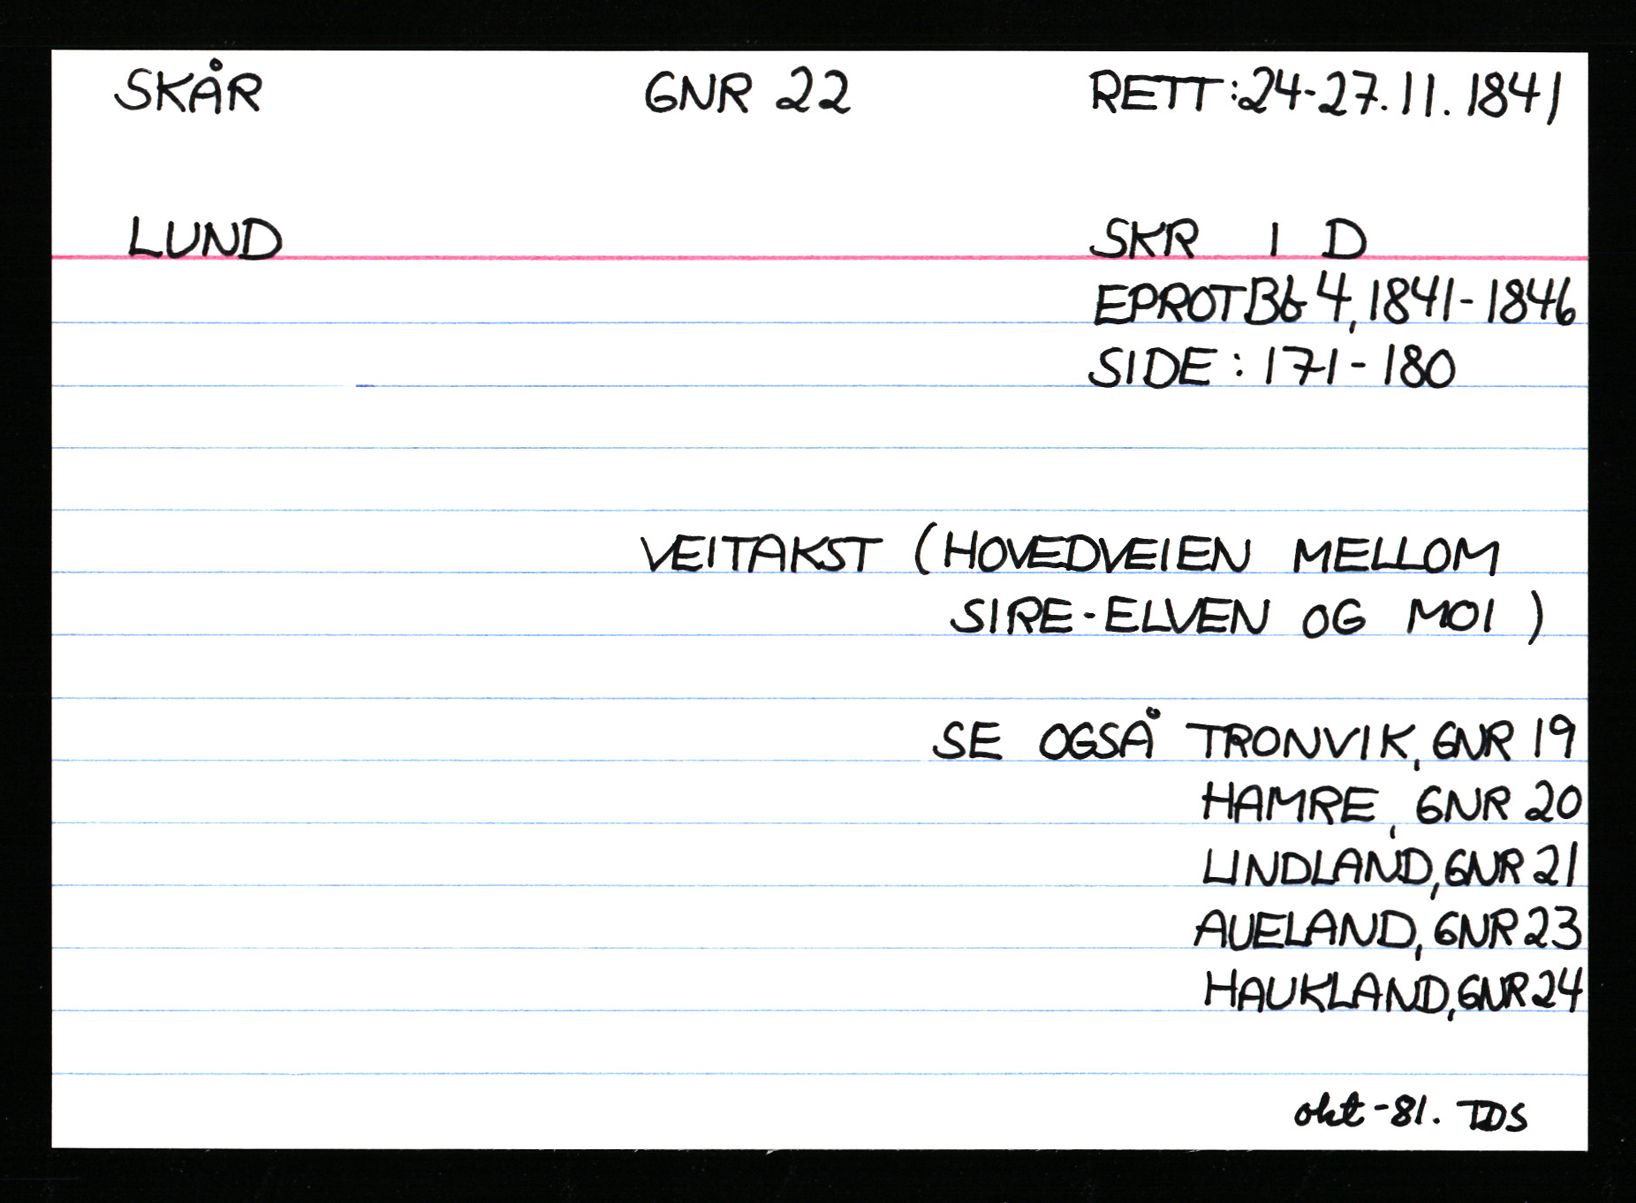 SKÅR GNR 22 RETT: 24-27.11.1841
LUND SKR 1 D
EPROT Bb 4, 1841-1846
SIDE: 171-180
VEITAKST (HOVEDVEIEN MELLOM
SIRE-ELVEN OG MOI)
SE OGSÅ TRONVIK, GNR 19
HAMRE, GNR 20
LINDLAND, GNR 21
AUELAND, GNR 23
HAUKLAND, GNR 24
okt-81. TDS